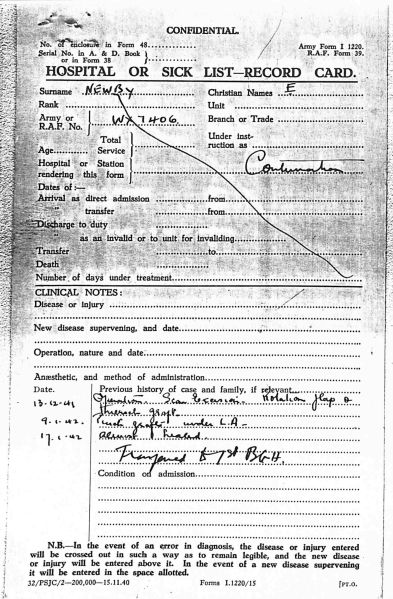 CONFIDENTIAL.
No. of enclosure in Form 48
Serial No. in A. & D. Book
or in Form 38
Army Form I 1220.
R.A.F. Form 39.
HOSPITAL OR SICK LIST—RECORD CARD.
Surname NEWBY Christian Names E
Rank Unit
Army or
R.A.F. No. WX 7406 Branch or Trade
Total
Age Service
Under inst-
ruction as
Hospital or Station
rendering this form
Continuation
Dates of:—
Arrival as direct admission from
transfer from
Discharge to duty
as an invalid or to unit for invaliding
Transfer to
Death
Number of days under treatment
CLINICAL NOTES:
Disease or injury
New disease supervening, and date
Operation, nature and date
Anæsthetic, and method of administration
Date. Previous history of case and family, if relevant
13.12.41 Operation. Scar Excision. Rotation flap &
Thiersch graft
9.1.42. Pinch grafts under L.A.
17.1.42 Almost healed.
Transferred to 1st B.G.H.
Condition on admission
N.B.—In the event of an error in diagnosis, the disease or injury entered
will be crossed out in such a way as to remain legible, and the new disease
or injury will be entered above it. In the event of a new disease supervening
it will be entered in the space allotted.
32/PSJC/2—200,000—15.11.40 Forms I.1220/15 [PT.O.